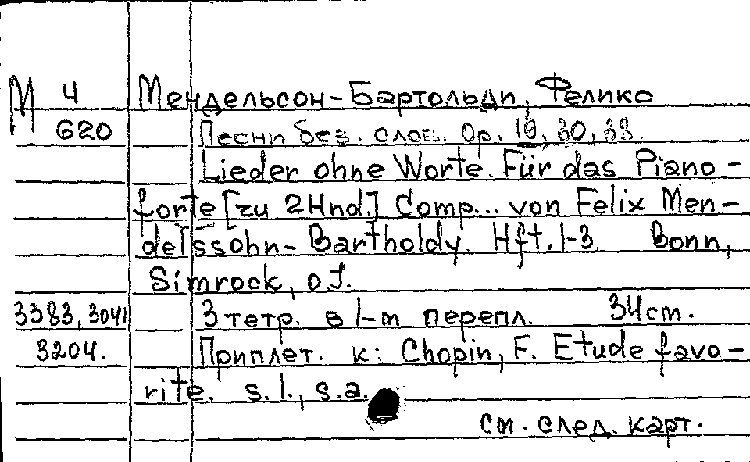 М 4 Мендельсон-Бартольди, Феликс
620 Песни без слов. Op. 19, 30, 38.
Lieder ohne Worte. Für das Piano-
forte [zu 2Hnd.] Comp... von Felix Men-
delssohn-Bartholdy. Hft. 1-3 Bonn,
Simrock, o J.
3383, 3041 3 тетр. в 1-м перепл. 34cm.
3204. Приплет. к: Chopin, F. Etude favo-
rite. s.l., s.a.
см. след. карт.